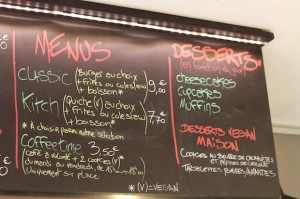 MENUS
CLASSIC (Burger au choix
+ Frites ou coleslaw
+ boisson* 9,00
Kitch (Quiche (V) au choix
+ Frites ou coleslaw
+ boisson* 7,70
* A choisir parmi notre sélection
Coffee time 3,50€
café à volonté + 2 cookies (V)
du mardi au vendredi, de
Uniquement sur place
DESSERTS
(en fonction du jour)
cheesecakes
Cupcakes
Muffins
DESSERTS VEGAN
MAISON
COOKIES AU BEURRE DE CACAHUÈTES
ET PÉPITES DE CHOCOLAT
TARTELETTES POMMES/AMANDES
* (V) = VEGAN